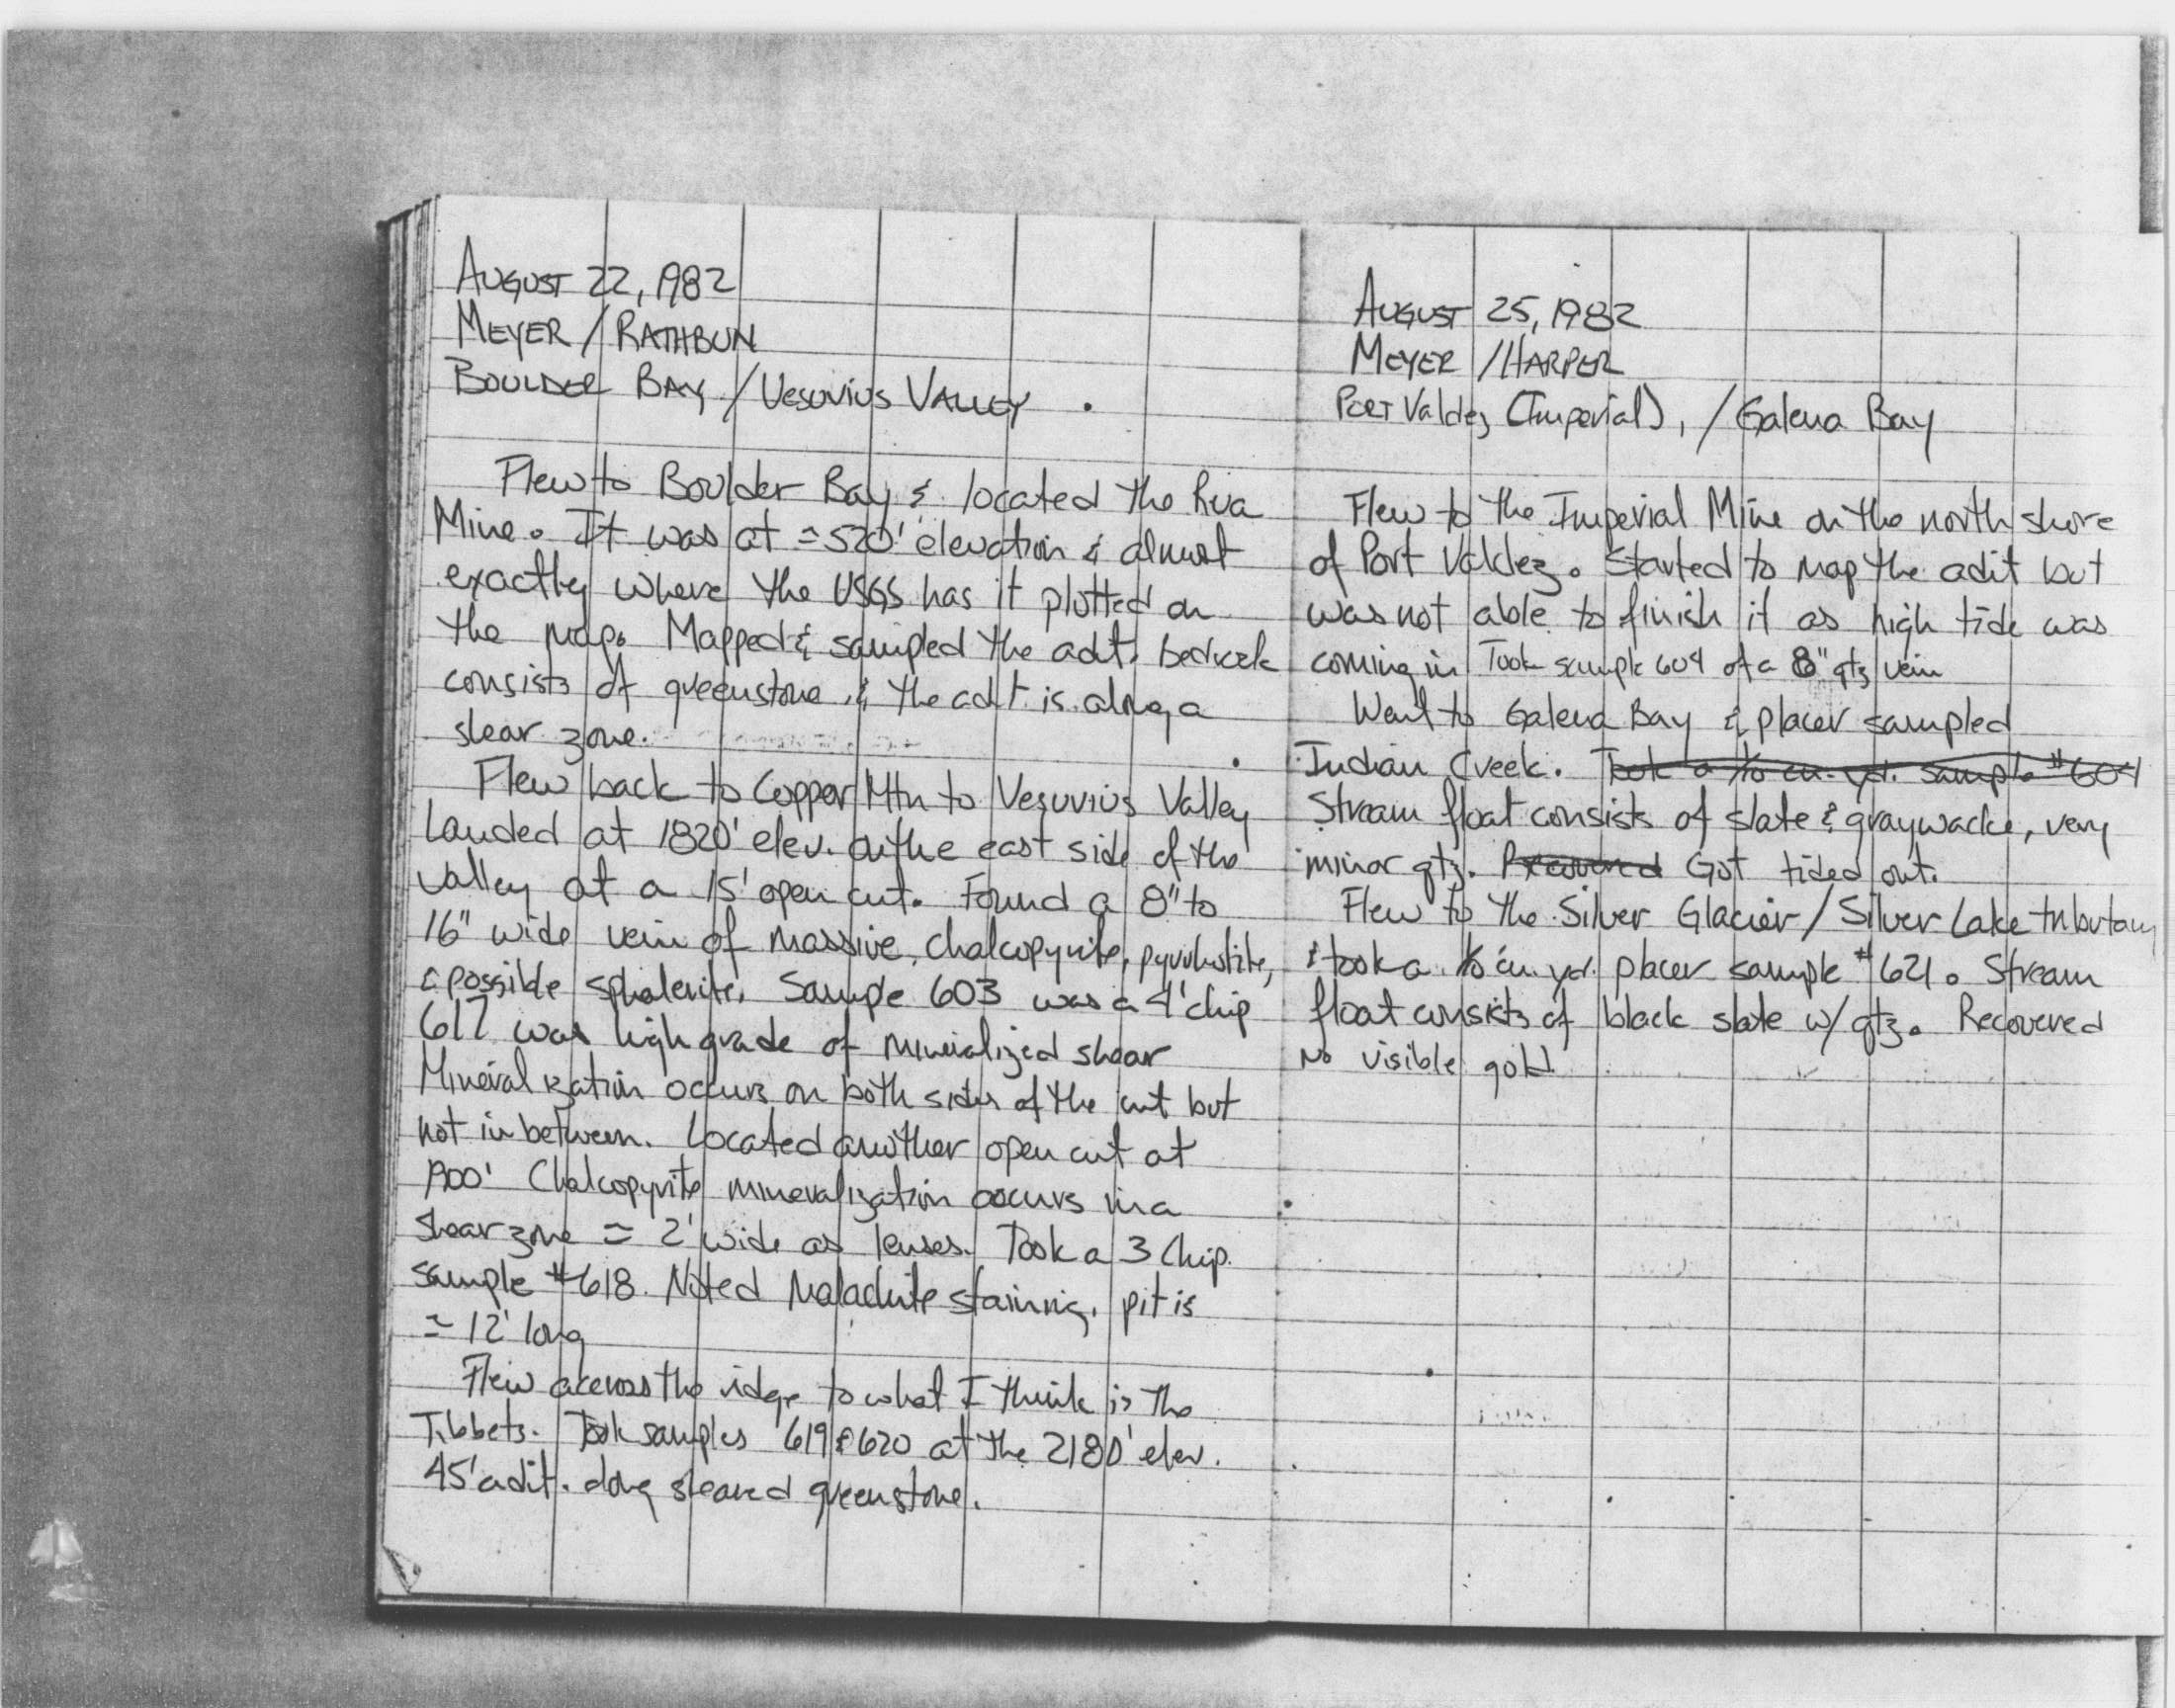 AUGUST 22, 1982
MEYER / RATHBUN
BOULDER BAY / VESUVIUS VALLEY .
Flew to Boulder Bay & located the Rua
Mine. It was at ≈520' elevation & almost
exactly where the USGS has it plotted on
the map. Mapped & sampled the adit. bedrock
consists of greenstone & the adit is along a
shear zone.
Flew back to Copper Mtn to Vesuvius Valley
Landed at 1820' elev. on the east side of the
valley at a 15' open cut. Found a 8" to
16" wide vein of massive, chalcopyrite, pyrrhotite,
& possible sphalerite. Sample 603 was a 4' chip
617 was high grade of mineralized shear
Mineralization occurs on both sides of the cut but
not in between. Located another open cut at
1900' Chalcopyrite mineralization occurs in a
shear zone ≈ 2' wide as lenses. Took a 3 chip.
sample #618. Noted Malachite staining. pit is
≈ 12' long
Flew across the ridge to what I think is the
Tibbets. Took samples 619 & 620 at the 2180' elev.
45' adit. along sheared greenstone.
AUGUST 25, 1982
MEYER / HARPER
PORT Valdez (Imperial), / Galena Bay
Flew to the Imperial Mine on the north shore
of Port Valdez. Started to map the adit but
was not able to finish it as high tide was
coming in Took sample 604 of a 8" qtz vein
Went to Galena Bay & placer sampled
Indian Creek. Took a 1/10 cu. yd. sample #604
Stream float consists of slate & graywacke, very
minor qtz. Recovered Got tided out.
Flew to the Silver Glacier / Silver Lake tributary
& took a 1/10 cu. yd. placer sample #621. Stream
float consists of black slate w/ qtz. Recovered
No visible gold.